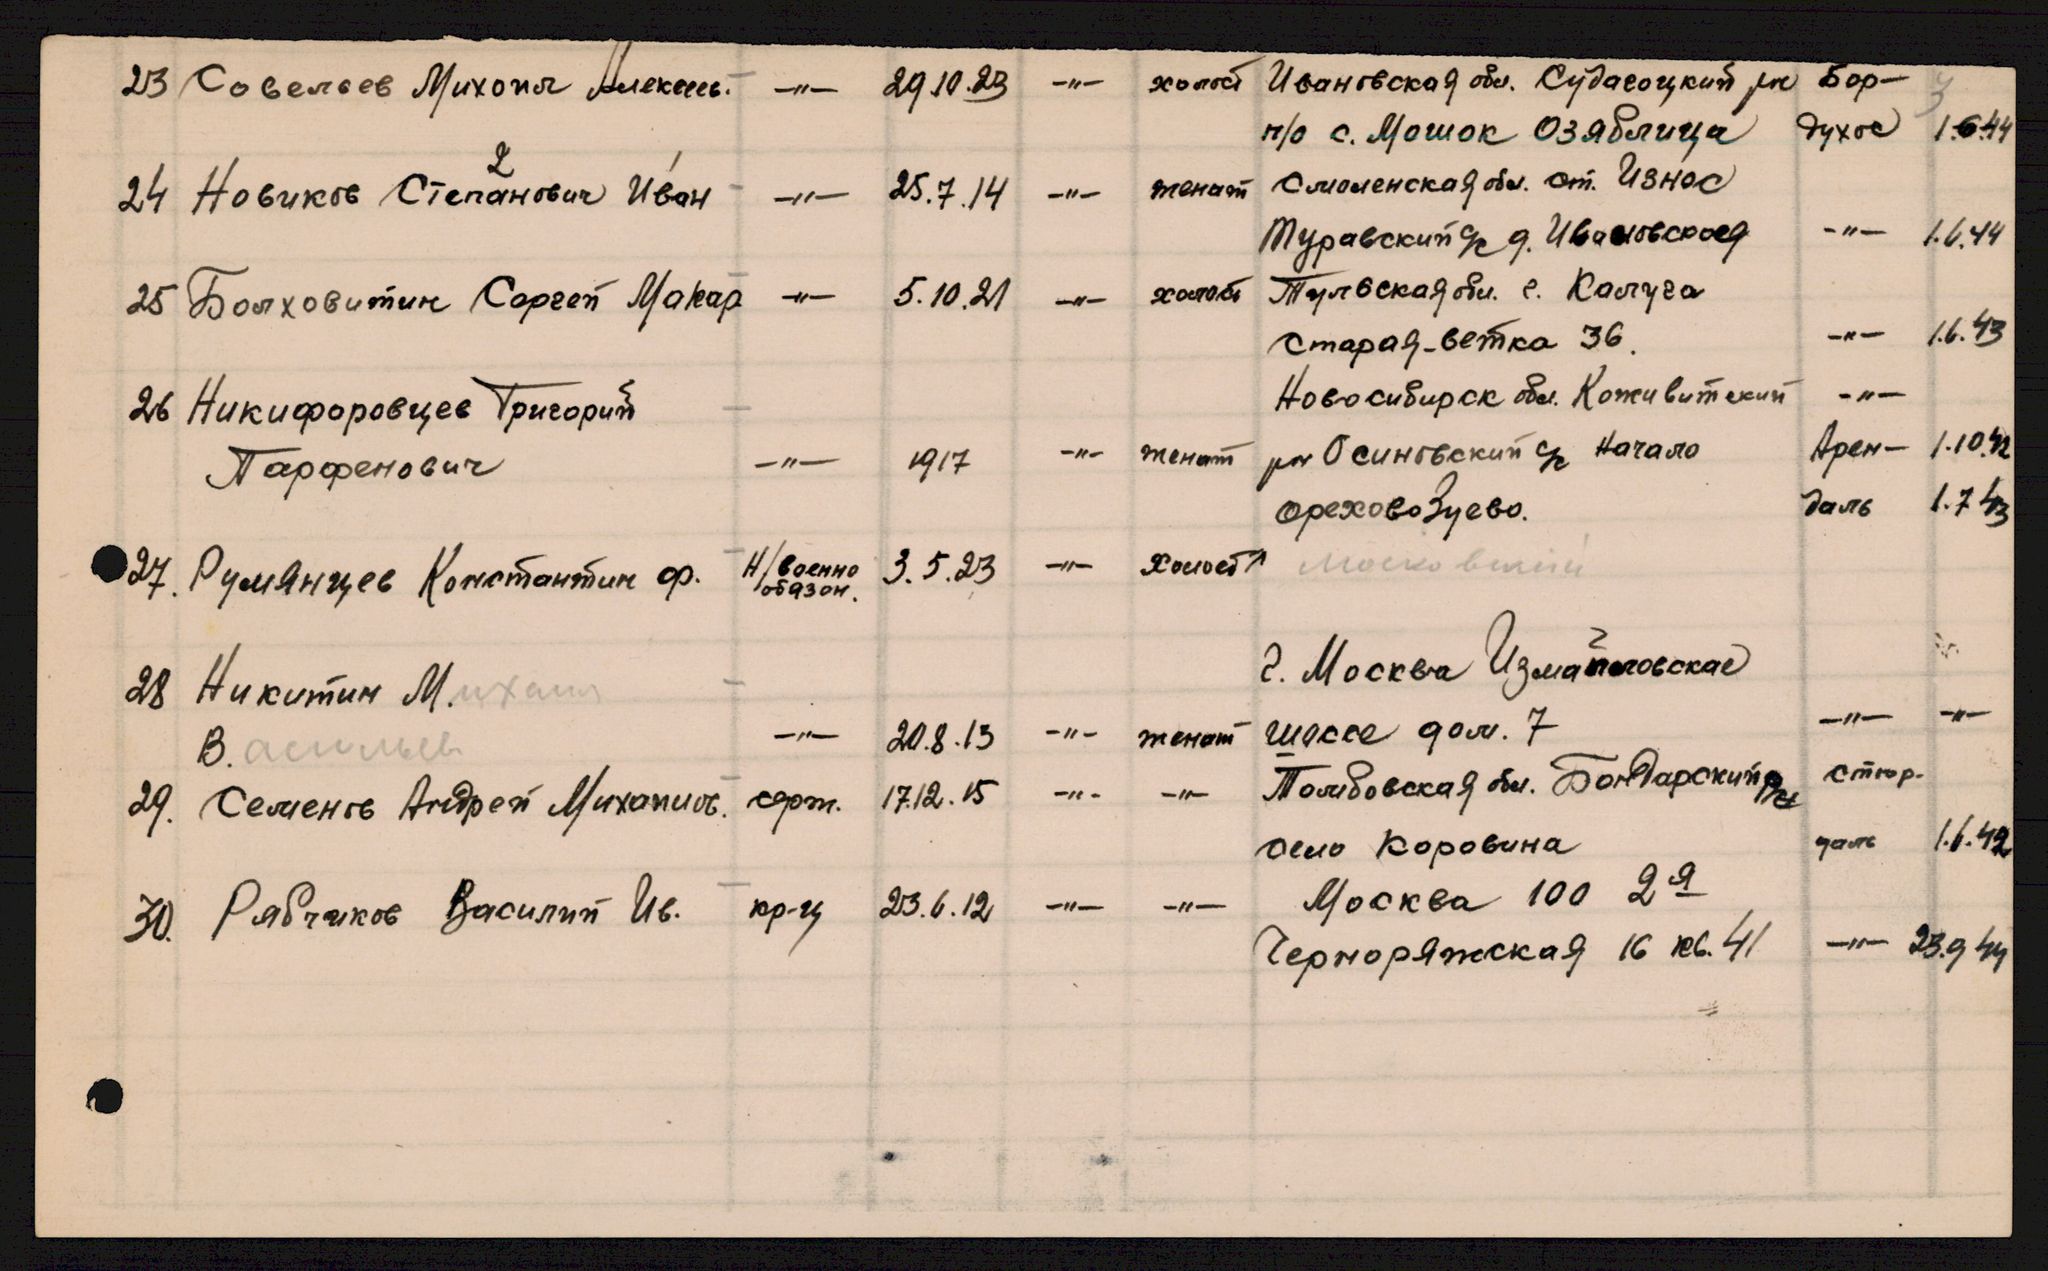 23 Совельев Михоил Алексеев. -"- 29.10.23 -"- холост Ивановская обл. Судагоцкий рн Бор-
п/о с. Мошок Озяблица духос 1.6.44
2
24 Новиков Степанович Иван -"- 25.7.14 -"- женат Смоленская обл. ст. Износ
Туравский с/с д. Ивановская -"- 1.6.44
25 Болховитин Соргей Макар -"- 5.10.21 -"- холост Тульвская обл. г. Калуга
Старая-ветка 36. -"- 1.6.43
26 Никифоровцев Григорий Новосибирск обл. Кожевитский -"-
Парфенович -"- 1917 -"- женат рн Осиновский с/с Начало Арен- 1.10.42
ОреховоЗуево. даль 1.7.43
27. Румянцев Константин Ф. Н/военно обязон. 3.5.23 -"- Холост Московский
28 Никитин М.ихаил г. Москва Измайловскае
В.асильев -"- 20.8.13 -"- женат шоссе дом. 7 -"- -"-
29. Семенов Андрей Михайлов. серж. 17.12.15 -"- -"- Томбовская обл. Бондарский рн стюр-
село Коровина даль 1.6.42
30. Рябчиков Василий Ив. кр-ц 23.6.12 -"- -"- Москва 100 2я
Черноряжская 16 кв. 41 -"- 23.9.44